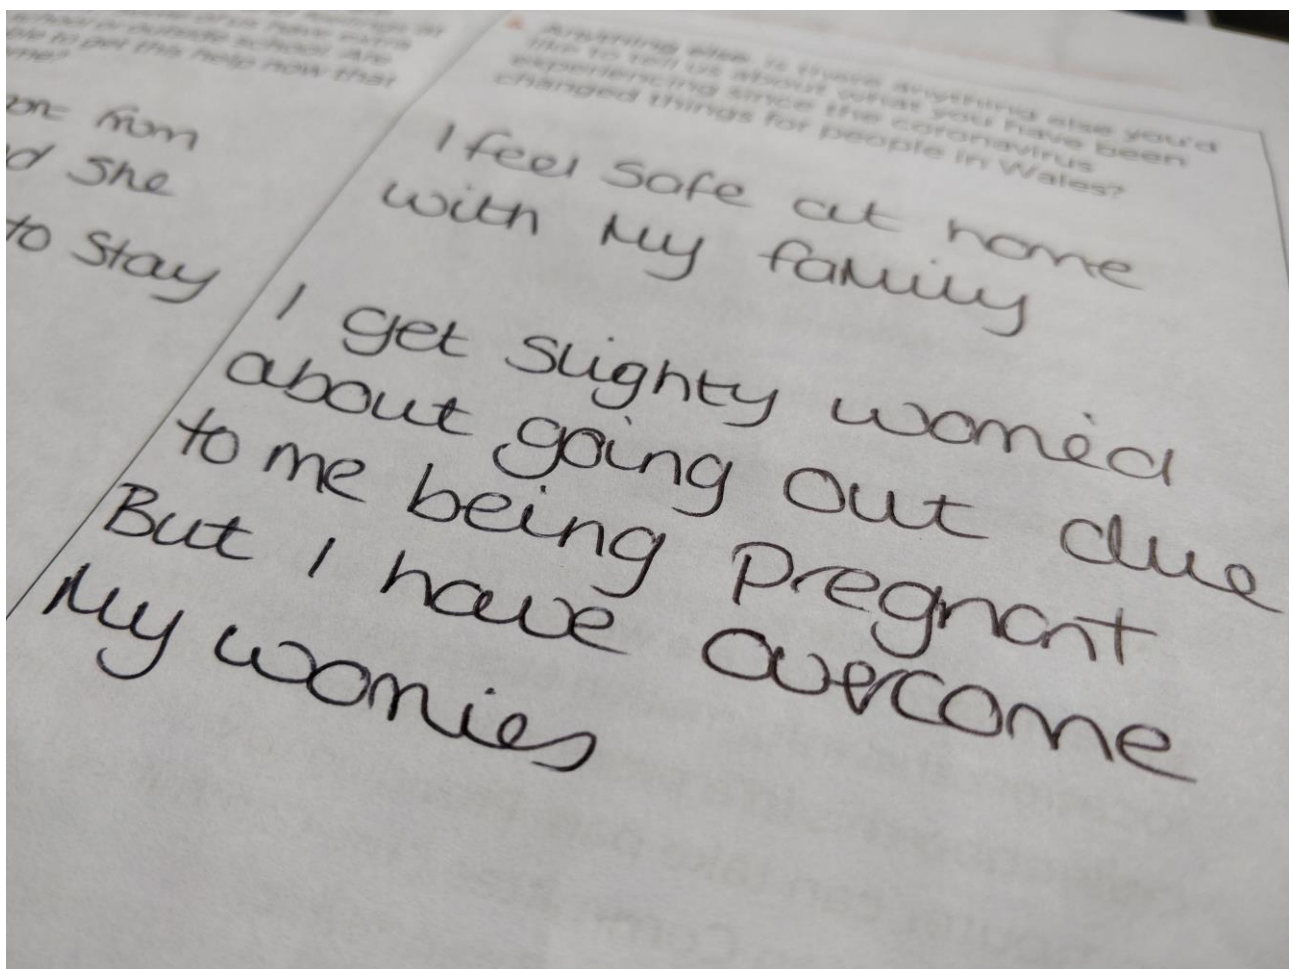 school or outside school. Are
to get this help now that
me?
from
She
to Stay
Anything else. Is there anything else you'd
like to tell us about what you have been
experiencing since the coronavirus
changed things for people in Wales?
I feel safe at home
with My family
I get slighty worried
about going out due
to me being Pregnant
But I have overcome
My worries